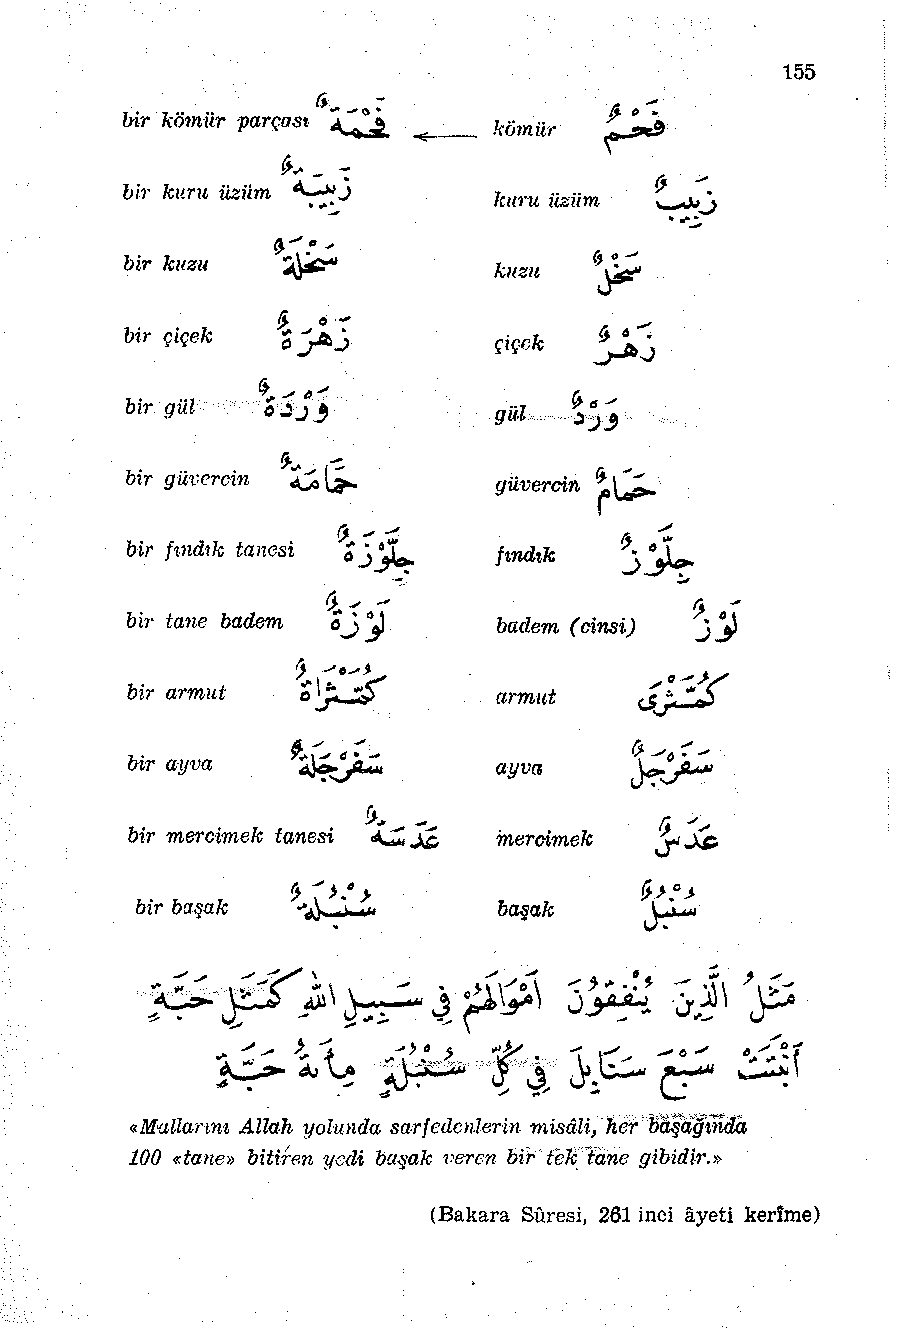 155
bir kömür parçası فَحْمَةٌ ← kömür فَحْمٌ
bir kuru üzüm زَبِيبَةٌ kuru üzüm زَبِيبٌ
bir kuzu سَخْلَةٌ kuzu سَخْلٌ
bir çiçek زَهْرَةٌ çiçek زَهْرٌ
bir gül وَرْدَةٌ gül وَرْدٌ
bir güvercin حَمَامَةٌ güvercin حَمَامٌ
bir fındık tanesi جِلَّوْزَةٌ fındık جِلَّوْزٌ
bir tane badem لَوْزَةٌ badem (cinsi) لَوْزٌ
bir armut كُمَّثْرَاةٌ armut كُمَّثْرَى
bir ayva سَفَرْجَلَةٌ ayva سَفَرْجَلٌ
bir mercimek tanesi عَدَسَةٌ mercimek عَدَسٌ
bir başak سُنْبُلَةٌ başak سُنْبُلٌ
مَثَلُ الَّذِينَ يُنْفِقُونَ اَمْوَالَهُمْ فِي سَبِيلِ اللهِ كَمَثَلِ حَبَّةٍ
اَنْبَتَتْ سَبْعَ سَنَابِلَ فِي كُلِّ سُنْبُلَةٍ مِائَةُ حَبَّةٍ
«Mallarını Allah yolunda sarfedenlerin misâli, her başağında
100 «tane» bitiren yedi başak veren bir tek tane gibidir.»
(Bakara Sûresi, 261 inci âyeti kerîme)